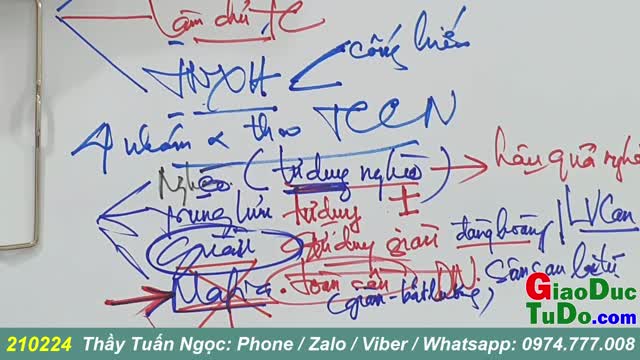 làm chủ TC
TNXH
cống hiến
4 nhóm
theo TCCN
Nghèo (tư duy nghèo)
hậu quả nghèo
Trung lưu tư duy
Giàu tư duy giàu
đàng hoàng / LVCan
toàn cầu
GiaoDuc
TuDo.com
210224 Thầy Tuấn Ngọc: Phone / Zalo / Viber / Whatsapp: 0974.777.008